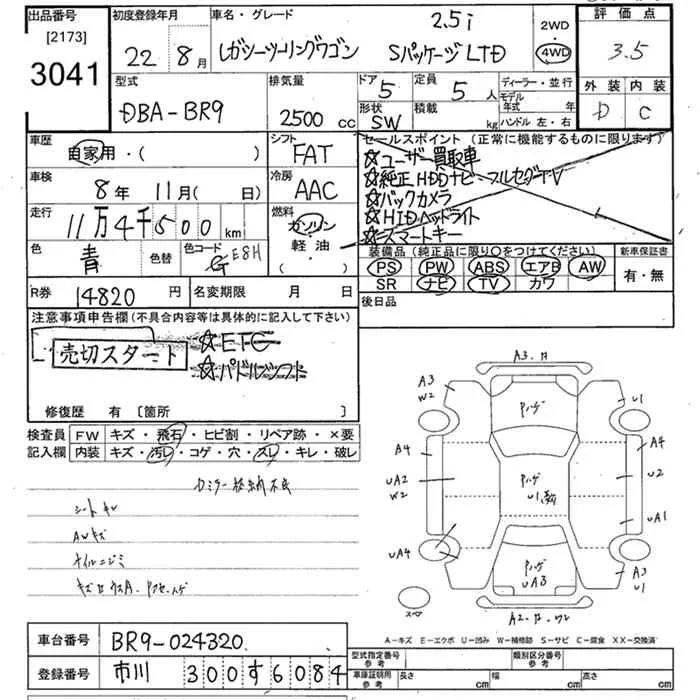 出品番号
[2173]
3041
初度登録年月
22年 8月
車名・グレード
レガシーツーリングワゴン 2.5i SパッケージLTD
2WD
4WD
評価点
3.5
外装 内装
D C
型式
DBA-BR9
排気量
2500 cc
ドア
5
定員
5人
形状
SW
積載
kg
ディーラー・並行
モデル年式 年
ハンドル 左・右
車歴
自家用・( )
シフト
FAT
車検
8年 11月( 日)
冷房
AAC
走行
11万4千500km
燃料
ガソリン
軽油・
( )
色
青
色替
色コード
E8H
セールスポイント(正常に機能するものに限ります)
☆ユーザー買取車
☆純正HDDナビ・フルセグTV
☆バックカメラ
☆HIDヘッドライト
☆スマートキー
装備品(純正品に限り○をつけてください)
PS PW ABS エアB AW
SR ナビ TV カワ
新車保証書
有・無
R券 14820円
名変期限 月 日
後日品
注意事項申告欄(不具合内容等は具体的に記入して下さい)
売切スタート
☆ETC
☆パドルシフト
修復歴 有 [箇所 ]
検査員記入欄
FW キズ・飛石・ヒビ割・リペア跡・×要
内装 キズ・汚れ・コゲ・穴・スレ・キレ・破レ
Dミラー格納不良
シートキレ
AWキズ
オイルニジミ
A3
W2
A4
UA2
W2
UA4
スペア
U1
A4
U2
UA1
A3
U1
UA3
A-キズ E-エクボ U-凹み W-補修跡 S-サビ C-腐食 XX-交換済
車台番号 BR9-024320
登録番号 市川 300す6084
型式指定番号
参考
類別区分番号
参考
車庫証明用
参考
長さ cm
幅 cm
高さ cm